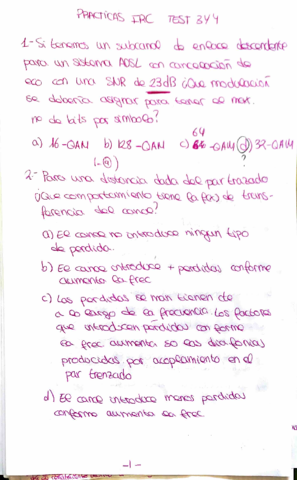 PRACTICAS IRC TEST 3 y 4
1- Si tenemos un subcanal de enlace descendente
para un sistema ADSL con cancelación de
eco con una SNR de 23dB ¿Que modulación
se debería asignar para tener el mar.
no de bits por simbolo?
64
a) 16-QAN b) 128-QAN c) 64-QAM d) 32-QAM
?
2- Para una distancia dada del par trazado
¿Que comportamiento tiene la f(x) de trans-
ferencia del canal?
a) El canal no introduce ningun tipo
de perdida.
b) El canal introduce + perdidas conforme
aumenta la frec
c) Las perdidas se man tienen cte
a lo largo de la frecuencia. Los factores
que introducen pérdidas con forme
la frac aumenta so las diafonias
producidas por acoplamiento en el
par trenzado
d) El canal introduce menos perdidas
conforme aumenta la frec
-1-